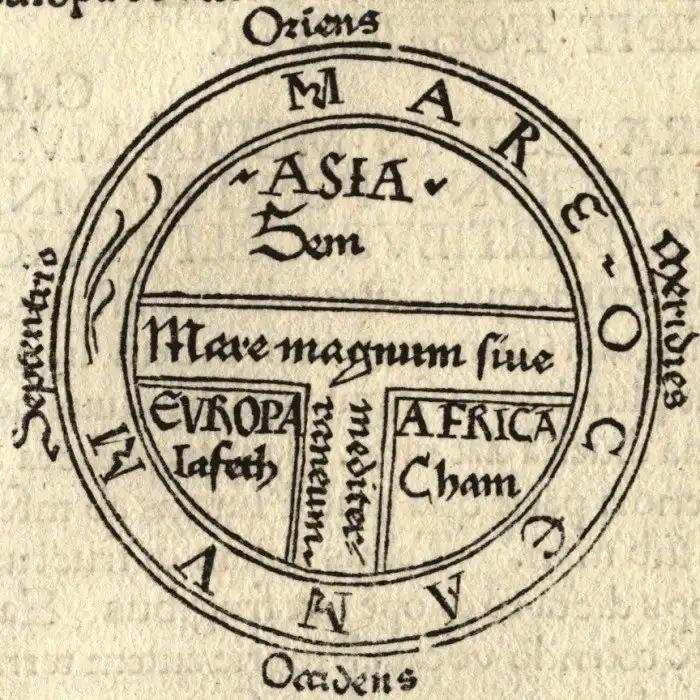 Oriens
MARE~OCEANVM
~ASIA~
Sem
Septentrio
Meridies
Mare magnum siue
mediter⸗
raneum.
EVROPA
Iafeth
AFRICA
Cham
Occidens